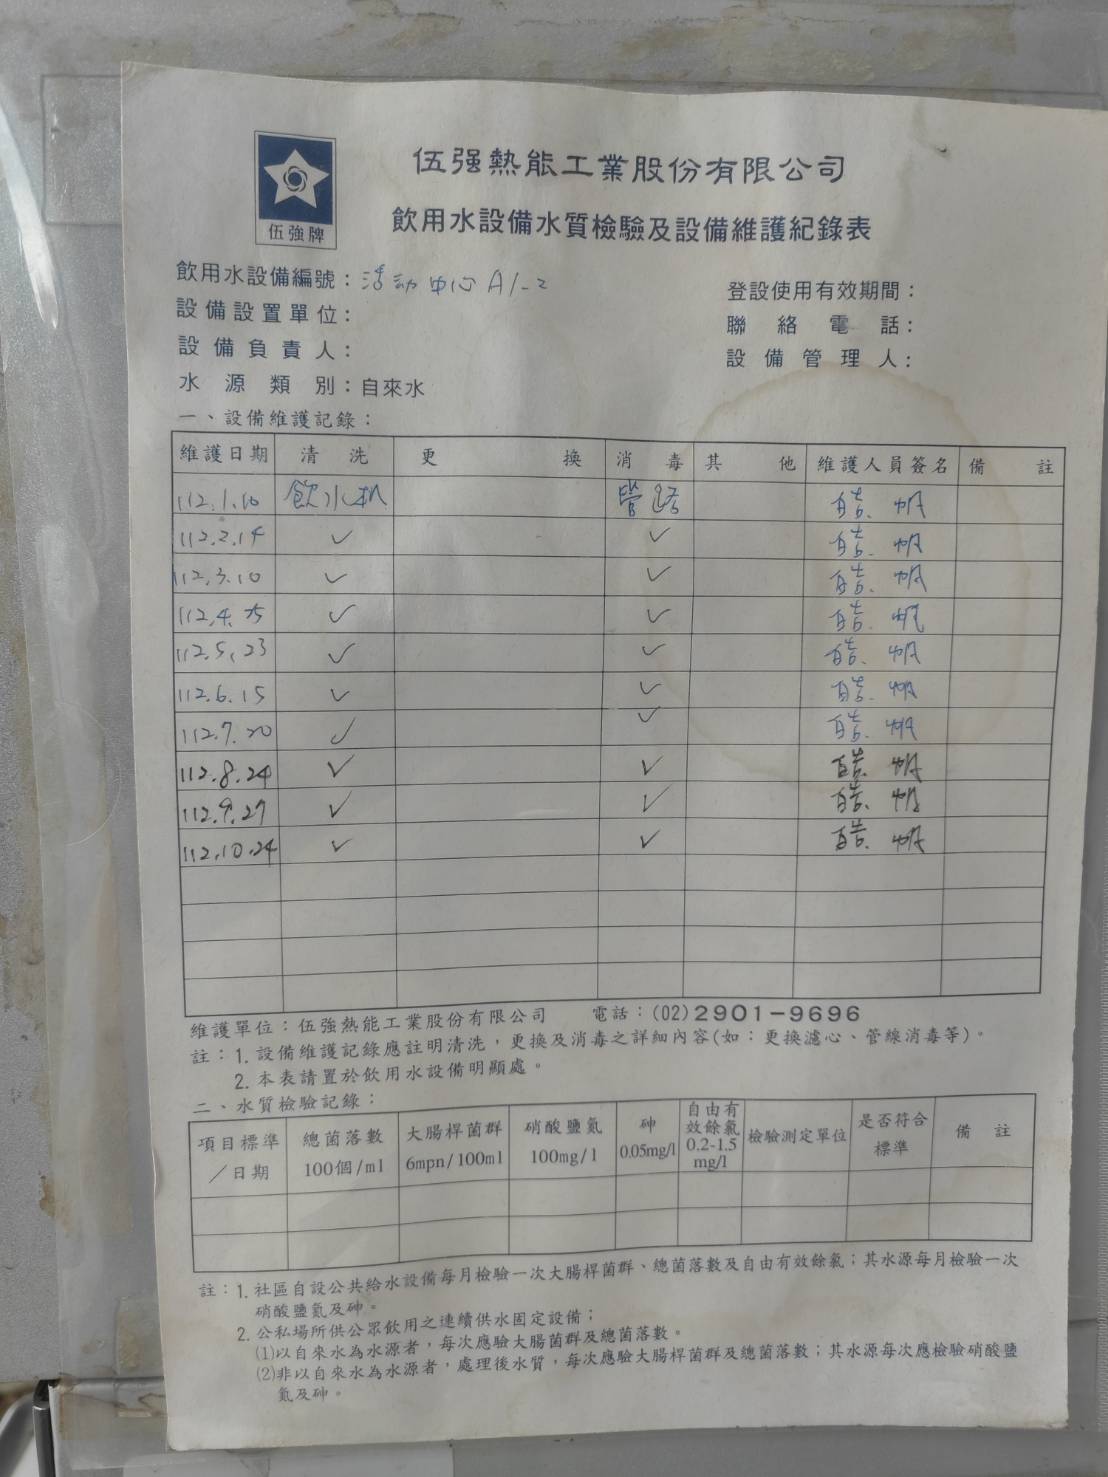 伍強牌
伍强熱能工業股份有限公司
飲用水設備水質檢驗及設備維護紀錄表
飲用水設備編號：活动中心A1-2
登設使用有效期間：
設備設置單位：
聯絡電話：
設備負責人：
設備管理人：
水源類別：自來水
一、設備維護記錄：
維護日期 清洗 更換 消毒 其他 維護人員簽名 備註
112.1.10 飲水机 管路 皓帆
112.2.14 ✓ ✓ 皓帆
112.3.10 ✓ ✓ 皓帆
112.4.25 ✓ ✓ 皓帆
112.5.23 ✓ ✓ 皓帆
112.6.15 ✓ ✓ 皓帆
112.7.20 ✓ ✓ 皓帆
112.8.24 ✓ ✓ 皓帆
112.9.27 ✓ ✓ 皓帆
112.10.24 ✓ ✓ 皓帆
維護單位：伍強熱能工業股份有限公司 電話：(02)2901-9696
註：1. 設備維護記錄應註明清洗，更換及消毒之詳細內容(如：更換濾心、管線消毒等)。
2. 本表請置於飲用水設備明顯處。
二、水質檢驗記錄：
項目標準／日期 總菌落數100個/ml 大腸桿菌群6mpn/100ml 硝酸鹽氮100mg/l 砷0.05mg/l 自由有效餘氯0.2-1.5mg/l 檢驗測定單位 是否符合標準 備註
註：1. 社區自設公共給水設備每月檢驗一次大腸桿菌群、總菌落數及自由有效餘氯；其水源每月檢驗一次
硝酸鹽氮及砷。
2. 公私場所供公眾飲用之連續供水固定設備；
⑴以自來水為水源者，每次應驗大腸菌群及總菌落數。
⑵非以自來水為水源者，處理後水質，每次應驗大腸桿菌群及總菌落數；其水源每次應檢驗硝酸鹽
氮及砷。